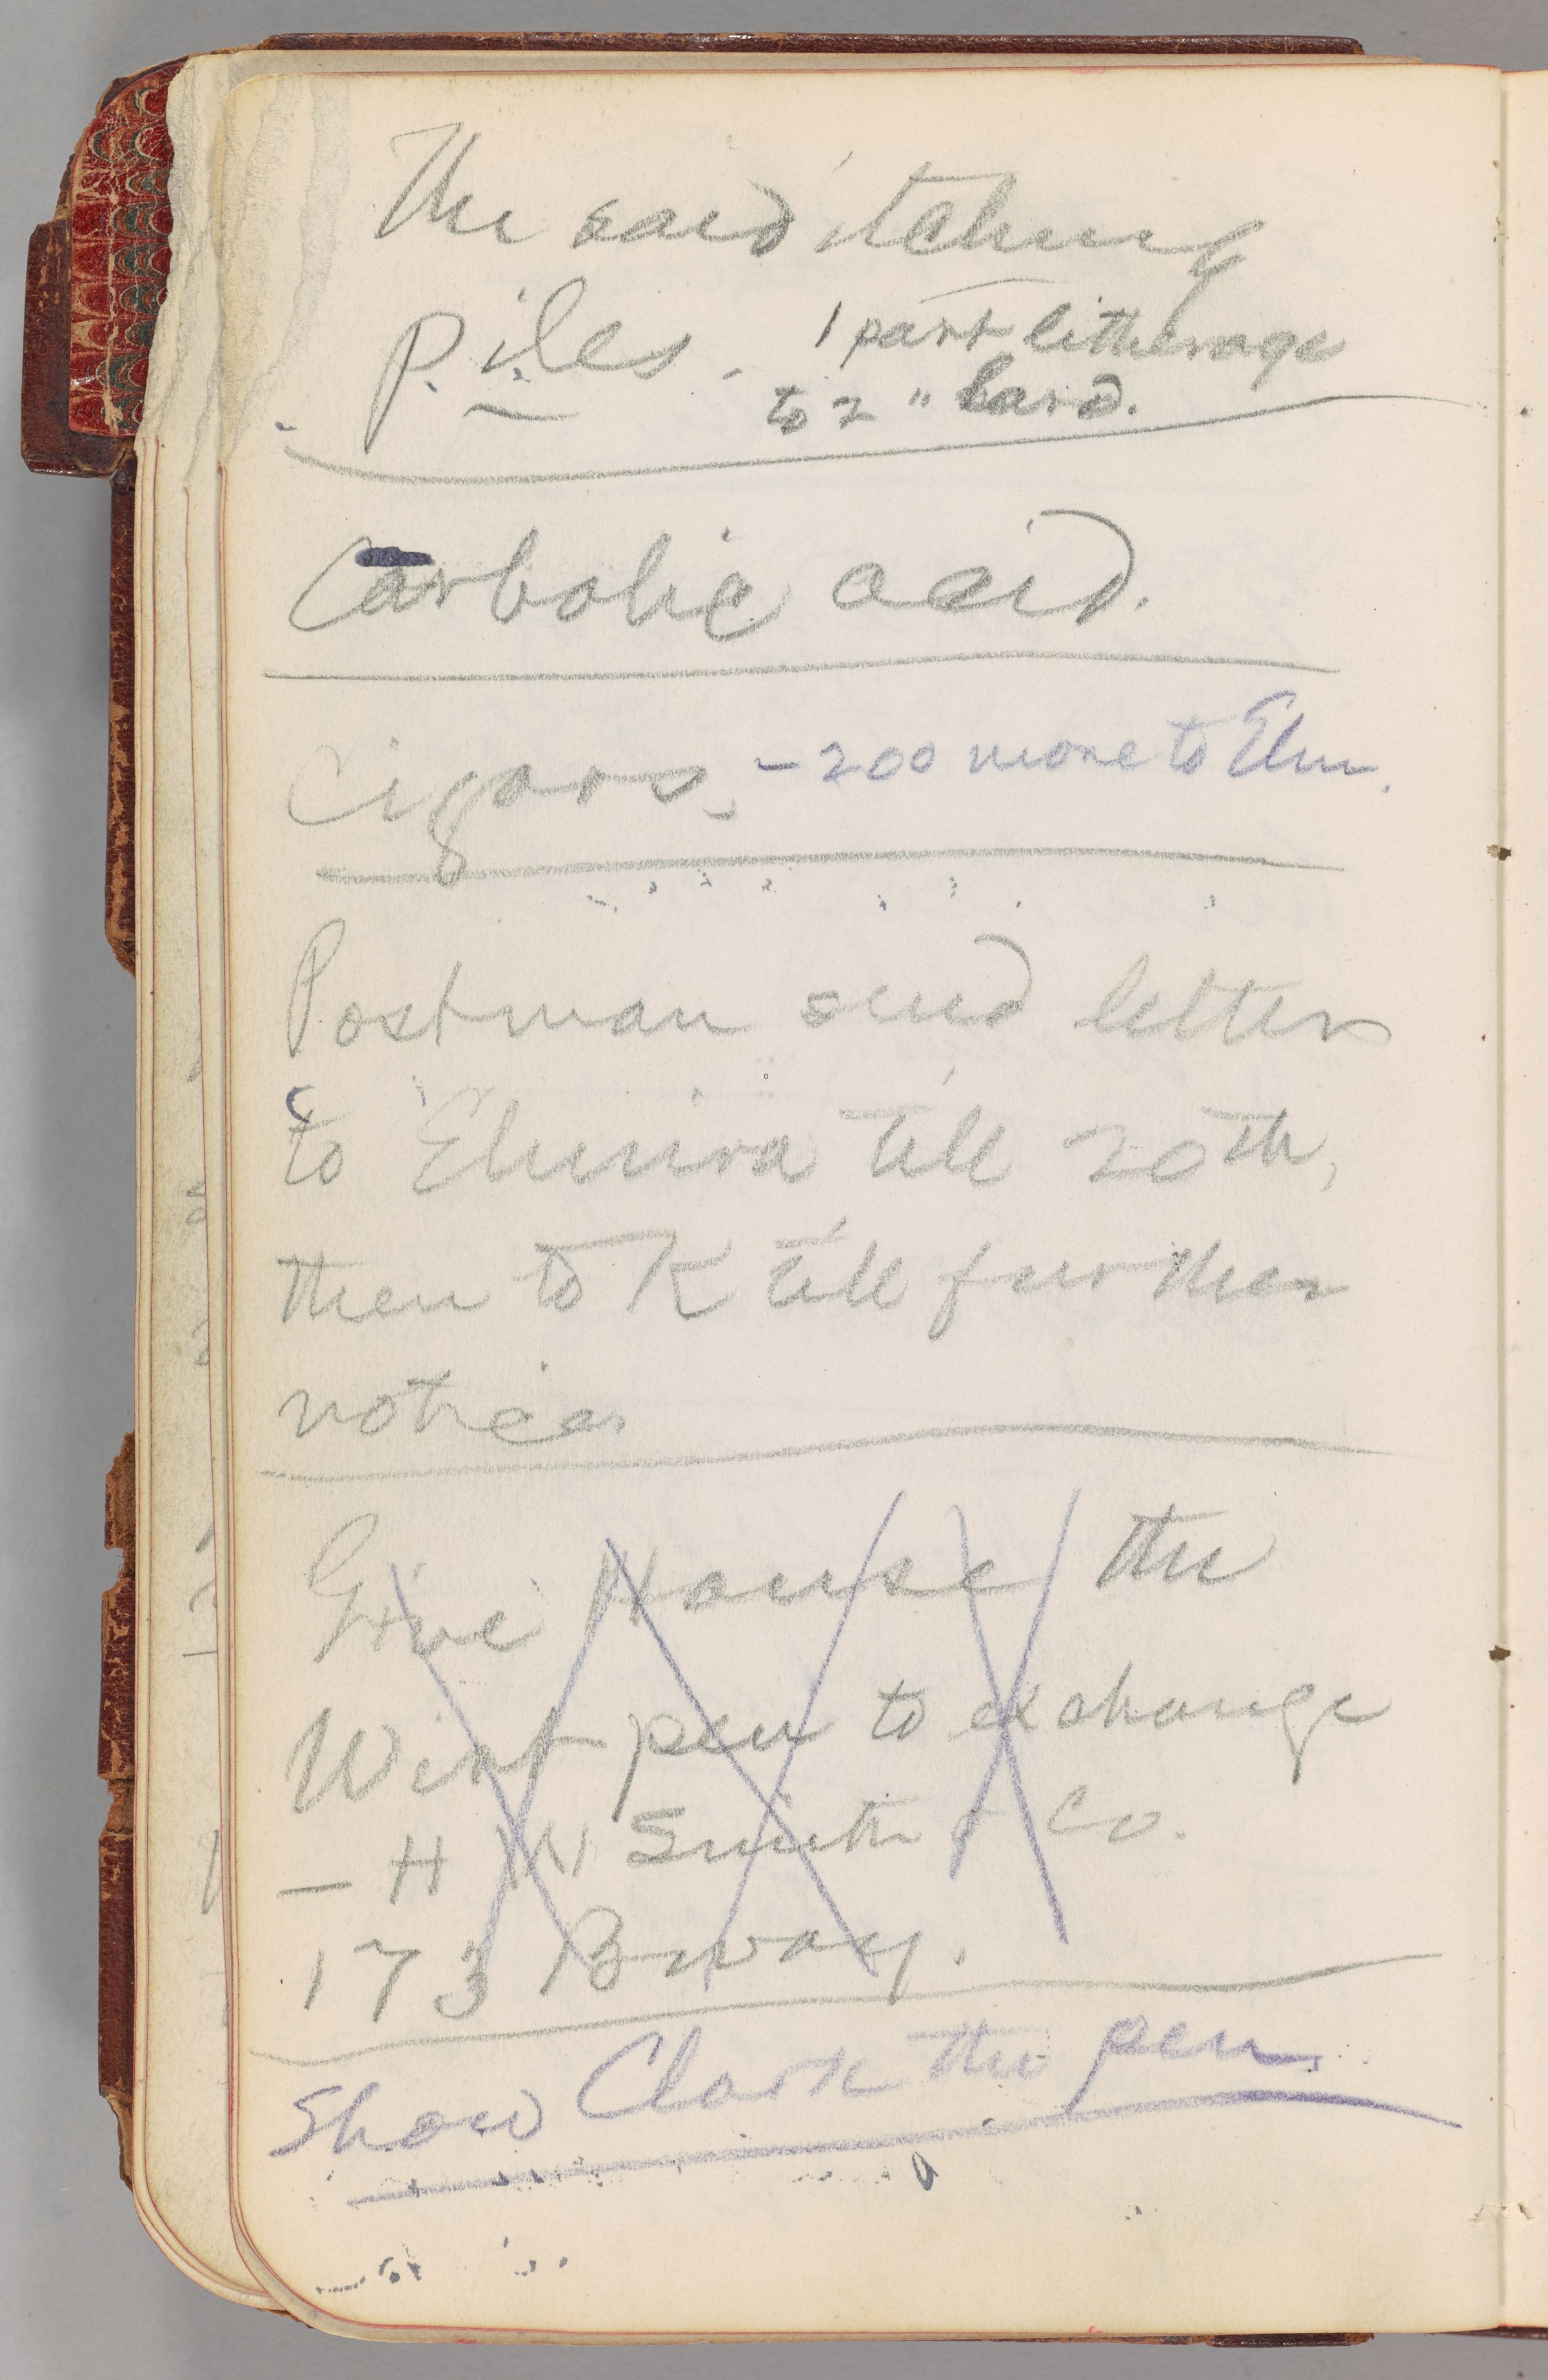 The said itching
piles. 1 part litherage
to 2 " lard.
Carbolic acid.
Cigars, – 200 more to Elm.
Postman send letters
to Elmira till 20th,
then to K till further
notice.
Give House the
Wirt pen to exchange
— H W Smith & Co.
173 Bway.
Show Clark the pen.